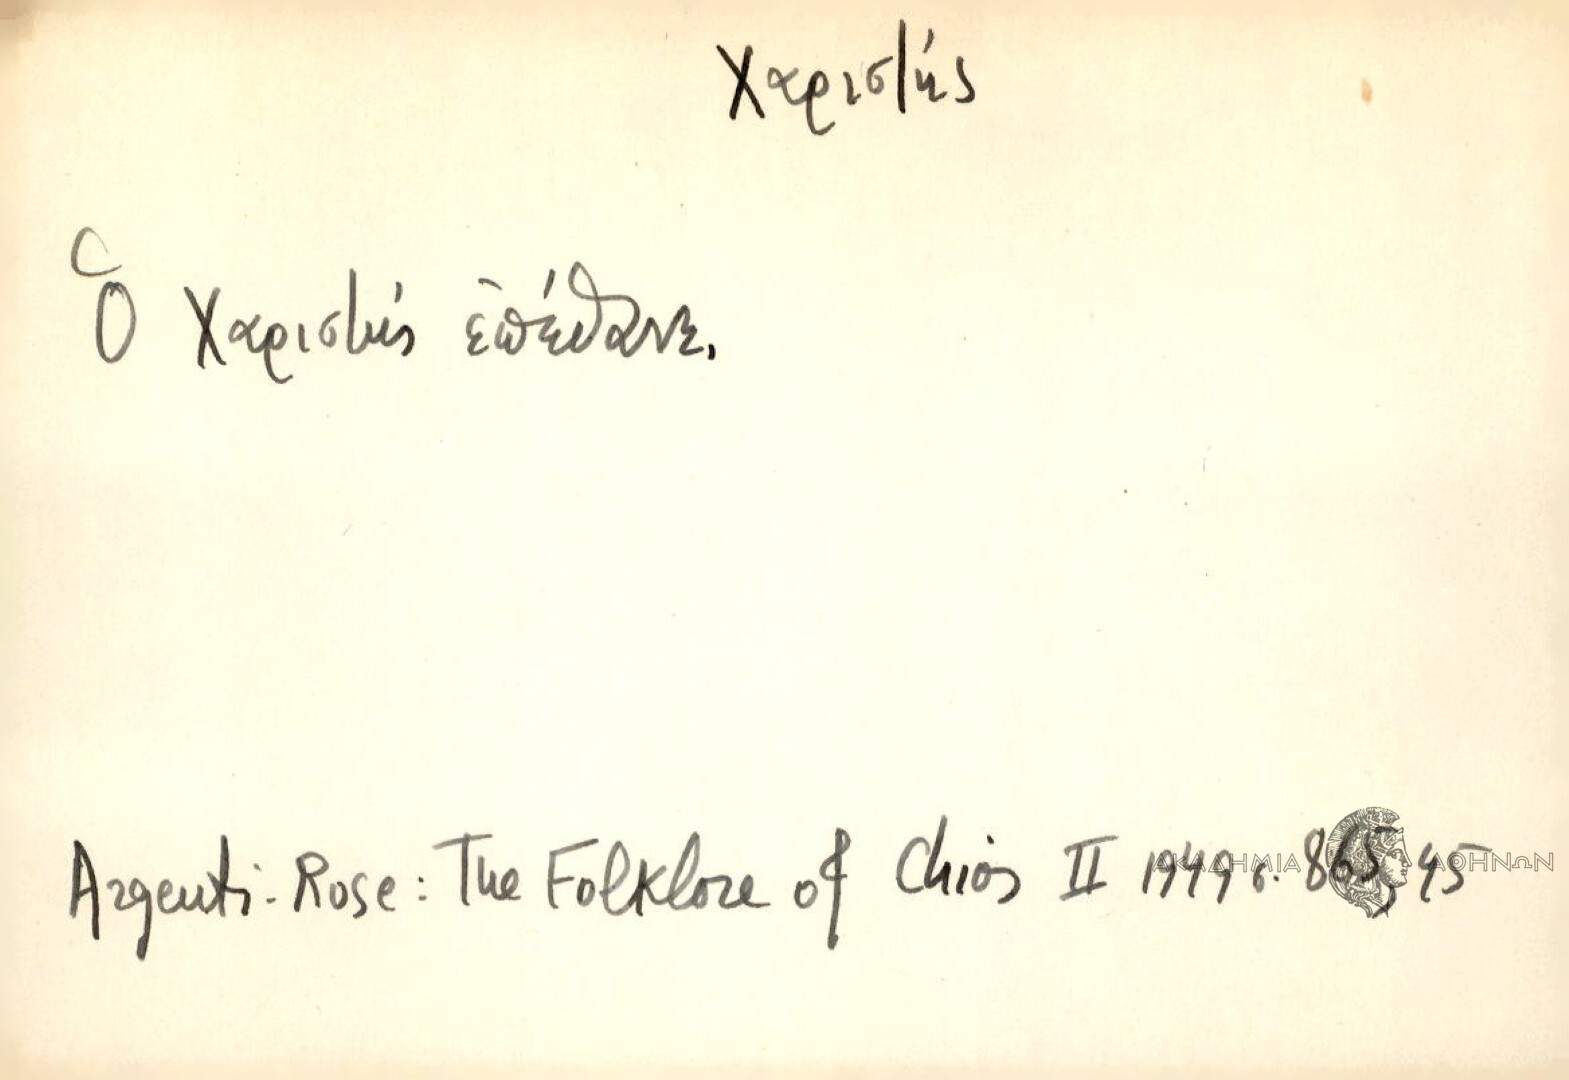 Χαριστής
Ὁ Χαριστής ἐπέθανε.
Argenti-Rose: The Folklore of Chios II 1949 σ. 865,45
ΑΚΑΔΗΜΙΑ ΑΘΗΝΩΝ